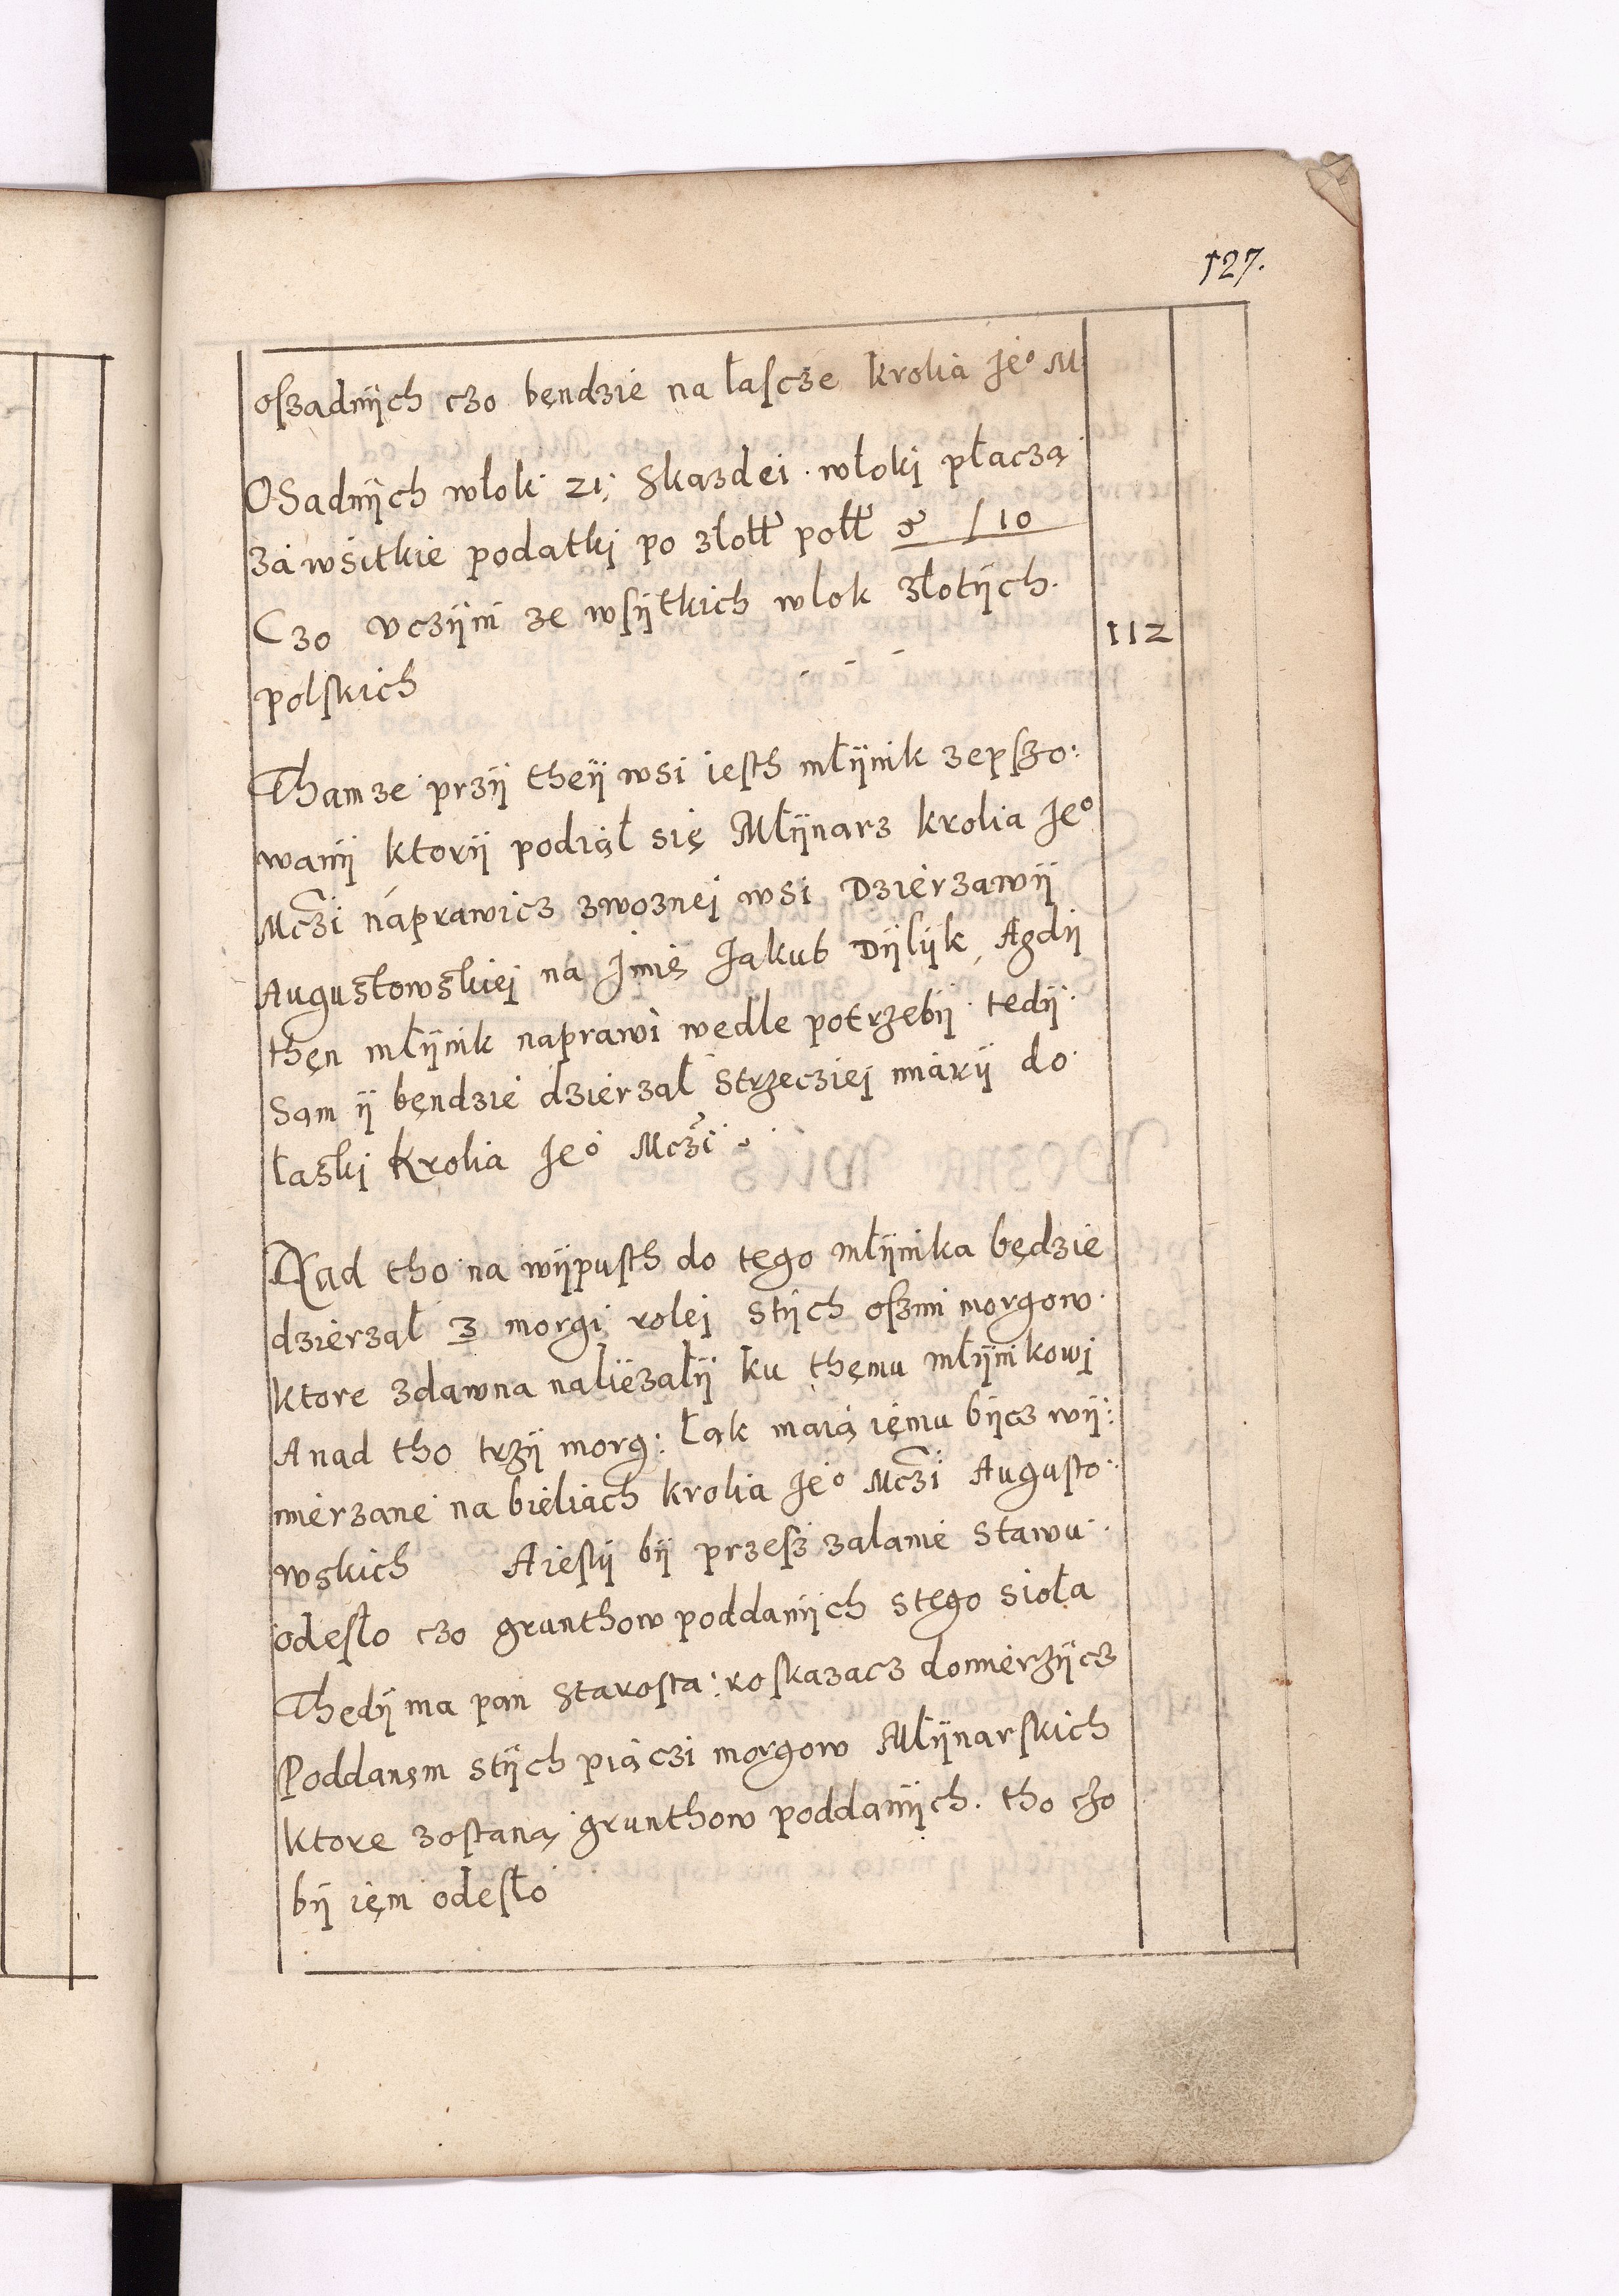 127.
oſzadnÿch czo bęndzie na łaſcze krolia Jeº M:
OSadnÿch włok 21; Skazdei włokj płaczą
za wsitkie podatkj po złott połt 5 / 10
Czo vczÿni ze wſÿtkich włok złotÿch.
112
polſkich
Thamze przÿ theÿ wsi ieſth młÿnik zepſzo:
wanÿ ktorÿ podiął się Młÿnarz krolia Jeº
Mczi naprawicz zwoznej wsi Dzierzawÿ
Augustowskiej na Jmię Jakub Dÿlÿk, Agdÿ
thęn młÿnik naprawi wedle potrzebÿ tedÿ
Sam ÿ bęndzie dzierzał Strzecziej miarÿ do
łaskj Krolia Jeº Mczi
Nad tho na wÿpuſth do tęgo młÿnika będzie
dzierzał 3 morgi rolej Stÿch oſzmi morgow
ktore zdawna należałÿ ku thęmu młÿnikowj
A nad tho trzÿ morg: łąk maią ięmu bÿcz wÿ:
mierzane na bieliach krolia Jeº Mczi Auguſto:
wskich A ieſlÿ bÿ przeſz zalanie Stawu
odeſło czo grunthow poddanÿch Stęgo Sioła
Thedÿ ma pan Staroſta: roſkazacz domierzÿcz
Poddanęm Stÿch piączi morgow Młÿnarſkich
ktore zoſtaną, grunthow poddanÿch. tho czo
bÿ ięm odeſło